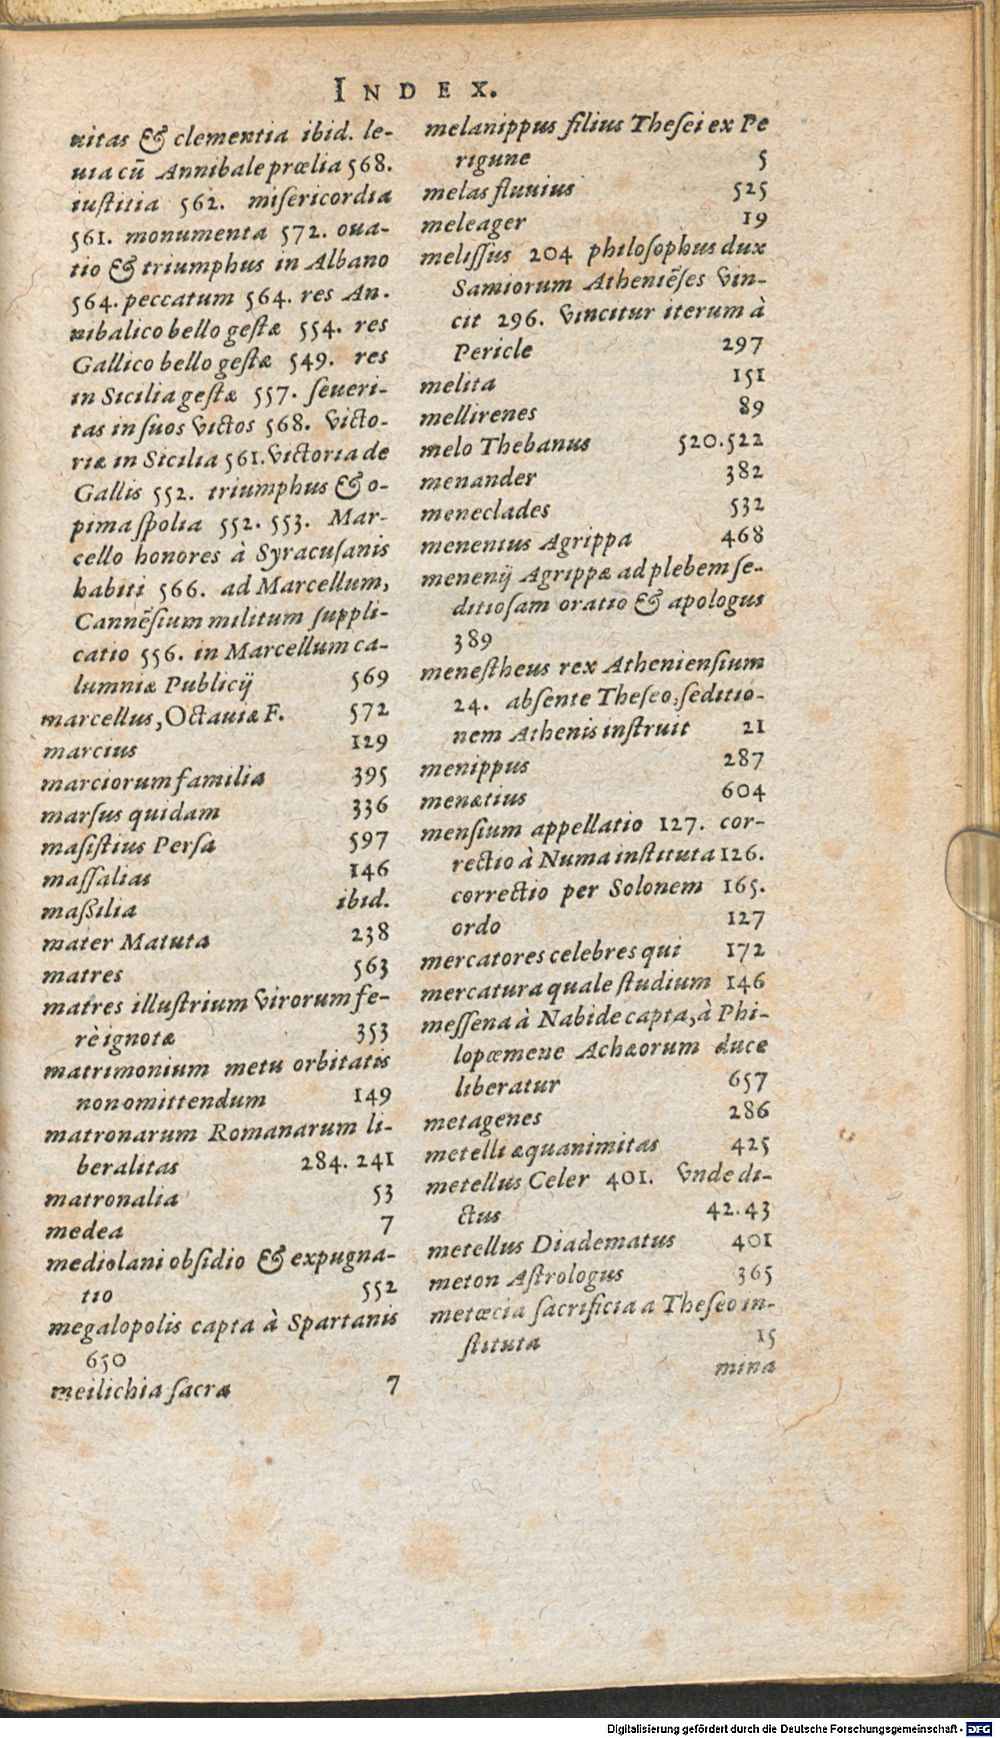 INDEX.
nitas & clementia ibid. le-
uia cū Annibale prœlia 568.
iustitia 562. misericordia
561. monumenta 572. oua-
tio & triumphus in Albano
564. peccatum 564. res An.
nibalico bello gestæ 554. res
Gallico bello gestæ 549. res
in Sicilia gestæ 557. seueri-
tas in suos victos 568. victo-
riæ in Sicilia 561. victoria de
Gallis 552. triumphus & o-
pima spolia 552. 553. Mar-
cello honores à Syracusanis
habiti 566. ad Marcellum,
Cannēsium militum suppli-
catio 556. in Marcellum ca-
lumniæ Publicij 569
marcellus, Octauiæ F. 572
marcius 129
marciorum familia 395
marsus quidam 336
masistius Persa 597
massalias 146
massilia ibid.
mater Matuta 238
matres 563
matres illustrium virorum fe-
rè ignotæ 353
matrimonium metu orbitatis
non omittendum 149
matronarum Romanarum li-
beralitas 284. 241
matronalia 53
medea 7
mediolani obsidio & expugna-
tio 552
megalopolis capta à Spartanis
650
meilichia sacra 7
melanippus filius Thesei ex Pe
rigune 5
melas fluuius 525
meleager 19
melissus 204 philosophus dux
Samiorum Atheniēses vin-
cit 296. vincitur iterum à
Pericle 297
melita 151
mellirenes 89
melo Thebanus 520.522
menander 382
meneclades 532
menenius Agrippa 468
menenij Agrippæ ad plebem se-
ditiosam oratio & apologus
389
menestheus rex Atheniensium
24. absente Theseo, seditio-
nem Athenis instruit 21
menippus 287
menatius 604
mensium appellatio 127. cor-
rectio à Numa instituta 126.
correctio per Solonem 165.
ordo 127
mercatores celebres qui 172
mercatura quale studium 146
messena à Nabide capta, à Phi-
lopœmene Achæorum duce
liberatur 657
metagenes 286
metelli æquanimitas 425
metellus Celer 401. vnde di-
ctus 42.43
metellus Diadematus 401
meton Astrologus 365
metœcia sacrificia a Theseo in-
stituta 15
mina
Digitalisierung gefördert durch die Deutsche Forschungsgemeinschaft - DFG